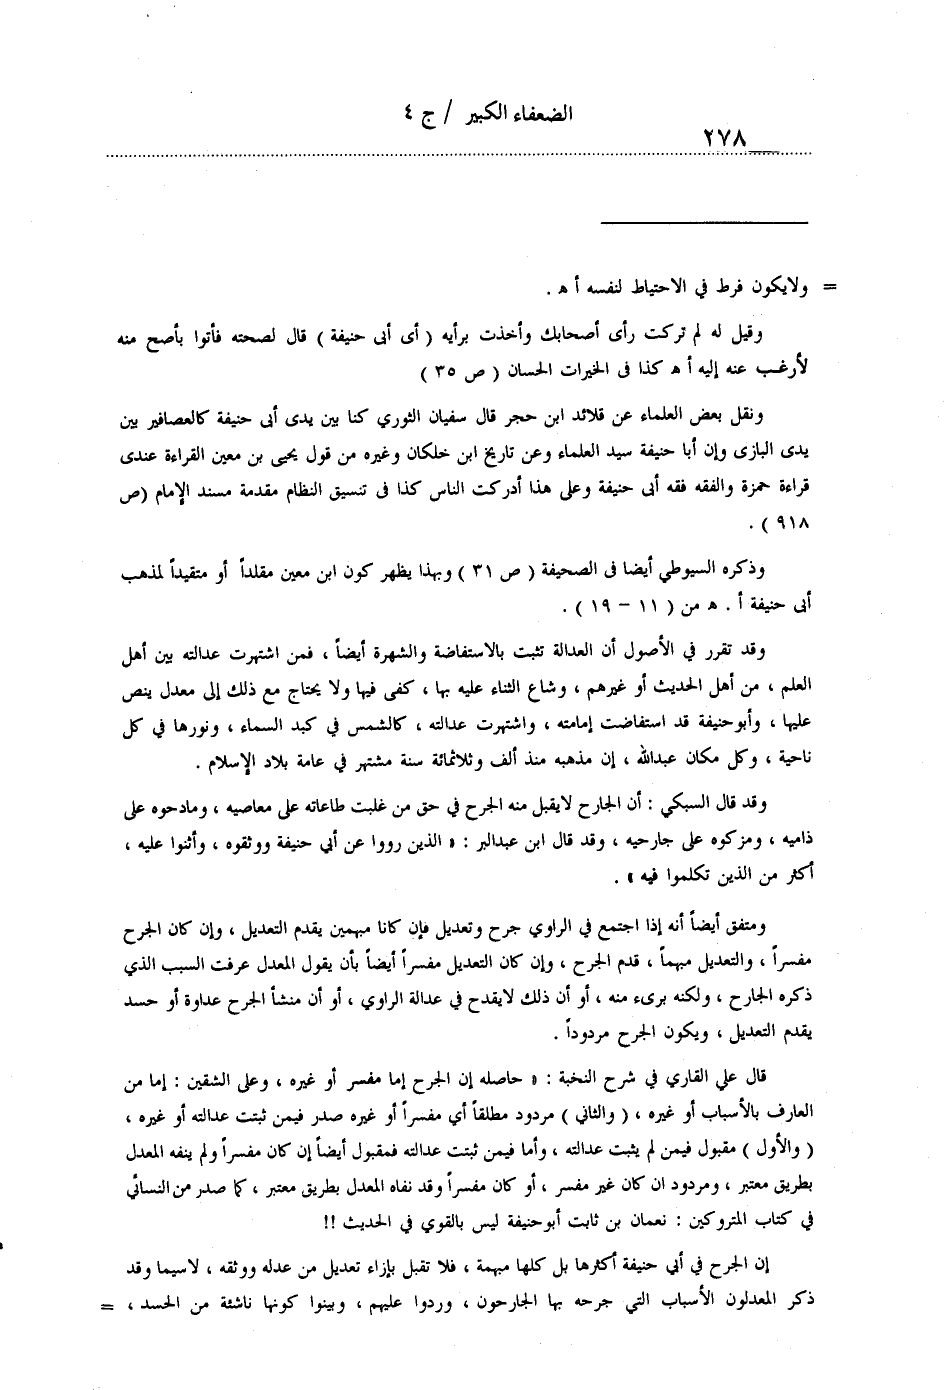 الضعفاء الكبير / ج ٤
٢٧٨
= ولايكون فرط في الاحتياط لنفسه أ هـ .
وقيل له لم تركت رأى أصحابك وأخذت برأيه ( أى أبى حنيفة ) قال لصحته فأتوا بأصح منه
لأرغب عنه إليه أ هـ كذا فى الخيرات الحسان ( ص ٣٥ )
ونقل بعض العلماء عن قلائد ابن حجر قال سفيان الثوري كنا بين يدى أبى حنيفة كالعصافير بين
يدى البازى وإن أبا حنيفة سيد العلماء وعن تاريخ ابن خلكان وغيره من قول يحيى بن معين القراءة عندى
قراءة حمزة والفقه فقه أبى حنيفة وعلى هذا أدركت الناس كذا فى تنسيق النظام مقدمة مسند الإمام (ص
٩١٨ ) .
وذكره السيوطي أيضا فى الصحيفة ( ص ٣١ ) وبهذا يظهر كون ابن معين مقلداً أو متقيداً لمذهب
أبى حنيفة أ . هـ من ( ١١ – ١٩ ) .
وقد تقرر في الأصول أن العدالة تثبت بالاستفاضة والشهرة أيضاً ، فمن اشتهرت عدالته بين أهل
العلم ، من أهل الحديث أو غيرهم ، وشاع الثناء عليه بها ، كفى فيها ولا يحتاج مع ذلك إلى معدل ينص
عليها ، وأبوحنيفة قد استفاضت إمامته ، واشتهرت عدالته ، كالشمس في كبد السماء ، ونورها في كل
ناحية ، وكل مكان عبدالله ، إن مذهبه منذ ألف وثلاثمائة سنة مشتهر في عامة بلاد الإسلام .
وقد قال السبكي : أن الجارح لايقبل منه الجرح في حق من غلبت طاعاته على معاصيه ، ومادحوه على
ذاميه ، ومزكوه على جارحيه ، وقد قال ابن عبدالبر : « الذين رووا عن أبي حنيفة ووثقوه ، وأثنوا عليه ،
أكثر من الذين تكلموا فيه » .
ومتفق أيضاً أنه إذا اجتمع في الراوي جرح وتعديل فإن كانا مبهمين يقدم التعديل ، وإن كان الجرح
مفسراً ، والتعديل مبهماً ، قدم الجرح ، وإن كان التعديل مفسراً أيضاً بأن يقول المعدل عرفت السبب الذي
ذكره الجارح ، ولكنه برىء منه ، أو أن ذلك لايقدح في عدالة الراوي ، أو أن منشأ الجرح عداوة أو حسد
يقدم التعديل ، ويكون الجرح مردوداً .
قال علي القاري في شرح النخبة : « حاصله إن الجرح إما مفسر أو غيره ، وعلى الشقين : إما من
العارف بالأسباب أو غيره ، ( والثاني ) مردود مطلقاً أي مفسراً أو غيره صدر فيمن ثبتت عدالته أو غيره ،
( والأول ) مقبول فيمن لم يثبت عدالته ، وأما فيمن ثبتت عدالته فمقبول أيضاً إن كان مفسراً ولم ينفه المعدل
بطريق معتبر ، ومردود ان كان غير مفسر ، أو كان مفسراً وقد نفاه المعدل بطريق معتبر ، كما صدر من النسائي
في كتاب المتروكين : نعمان بن ثابت أبوحنيفة ليس بالقوي في الحديث !!
إن الجرح في أبي حنيفة أكثرها بل كلها مبهمة ، فلا تقبل بإزاء تعديل من عدله ووثقه ، لاسيما وقد
ذكر المعدلون الأسباب التي جرحه بها الجارحون ، وردوا عليهم ، وبينوا كونها ناشئة من الحسد ، =